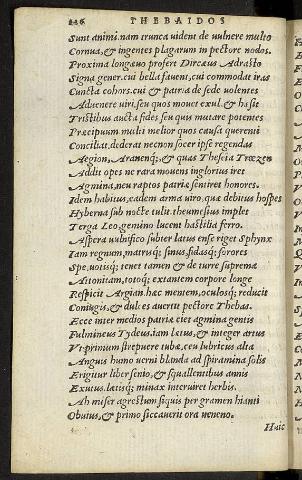 226 THEBAIDOS
Sunt animi. nam trunca uidem de uulnere multo
Cornua, & ingentes plagarum in pectore nodos.
Proxima longæuo profert Dircæus Adrasto
Signa gener. cui bella fauent, cui commodat iras
Cuncta cohors. cui & patria de sede uolentes
Aduenere uiri. seu quos mouet exul. & hæsit
Tristibus aucta fides seu quis mutare potentes
Præcipuum multi melior quos causa querenti
Conciliat. dederat necnon socer ipse regendas
Aegion, Arenenq; & quas Theseia Troezen
Addit opes ne rara mouens inglorius ires
Agmina, neu raptos patriæ sentiret honores.
Idem habitus, eadem arma uiro, quæ debitus hospes
Hyberna sub nocte tulit. theumesius implet
Terga Leo. gemino lucent hastilia ferro.
Aspera uulnifico subter latus ense riget Sphynx
Iam regnum, matrisq; sinus, fidasq; sorores
Spe, uotisq; tenet tamen & de turre suprema
Attonitam, totoq; extantem corpore longe
Respicit Argian. hæc mentem, oculosq; reducit
Coniugis, & dulces auertit pectore Thebas.
Ecce inter medios patriæ ciet agmina gentis
Fulmineus Tydeus. iam lætus, & integer artus
Vt primum strepuere tubæ. ceu lubricus alta
Anguis humo uerni blanda ad spiramina solis
Erigitur liber senio, & squallentibus annis
Exutus. lætisq; minax interuiret herbis.
Ah miser agrestum siquis per gramen hianti
Obuius, & primo siccauerit ora ueneno.
Huic